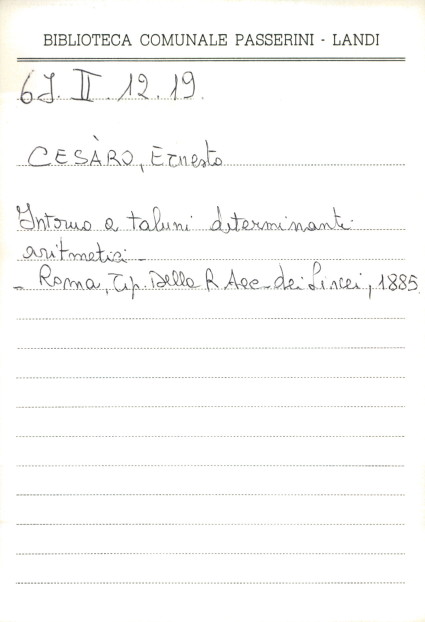 BIBLIOTECA COMUNALE PASSERINI - LANDI
6J. II. 12. 19.
CESÀRO, Ernesto
Intorno a taluni determinanti
aritmetici -
- Roma, Tip. Della R. Acc. dei Lincei, 1885